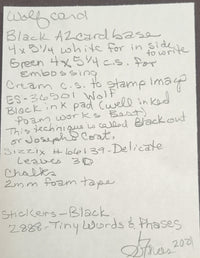 Wolf card
Black A2 card base
4 x 5 1/4 white for inside
to write
Green 4 x 5 1/4 c.s. for
Embossing
Cream c.s. to stamp image
ES-36501 Wolf
Black ink pad (well inked
foam works Best)
This technique is called Blackout
or Joseph's Coat.
Sizzix # 661139 - Delicate
Leaves 3D
Chalks
2mm foam tape
Stickers - Black
2888 - Tiny Words & Phases
2021